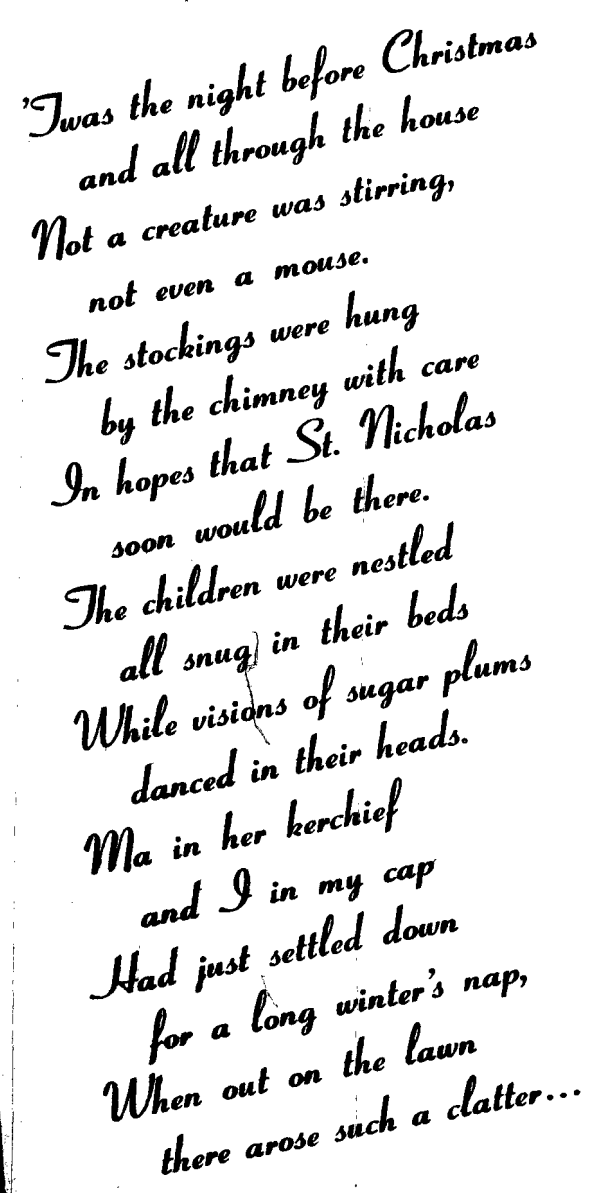 'Twas the night before Christmas
and all through the house
Not a creature was stirring,
not even a mouse.
The stockings were hung
by the chimney with care
In hopes that St. Nicholas
soon would be there.
The children were nestled
all snug in their beds
While visions of sugar plums
danced in their heads.
Ma in her kerchief
and I in my cap
Had just settled down
for a long winter's nap,
When out on the lawn
there arose such a clatter...